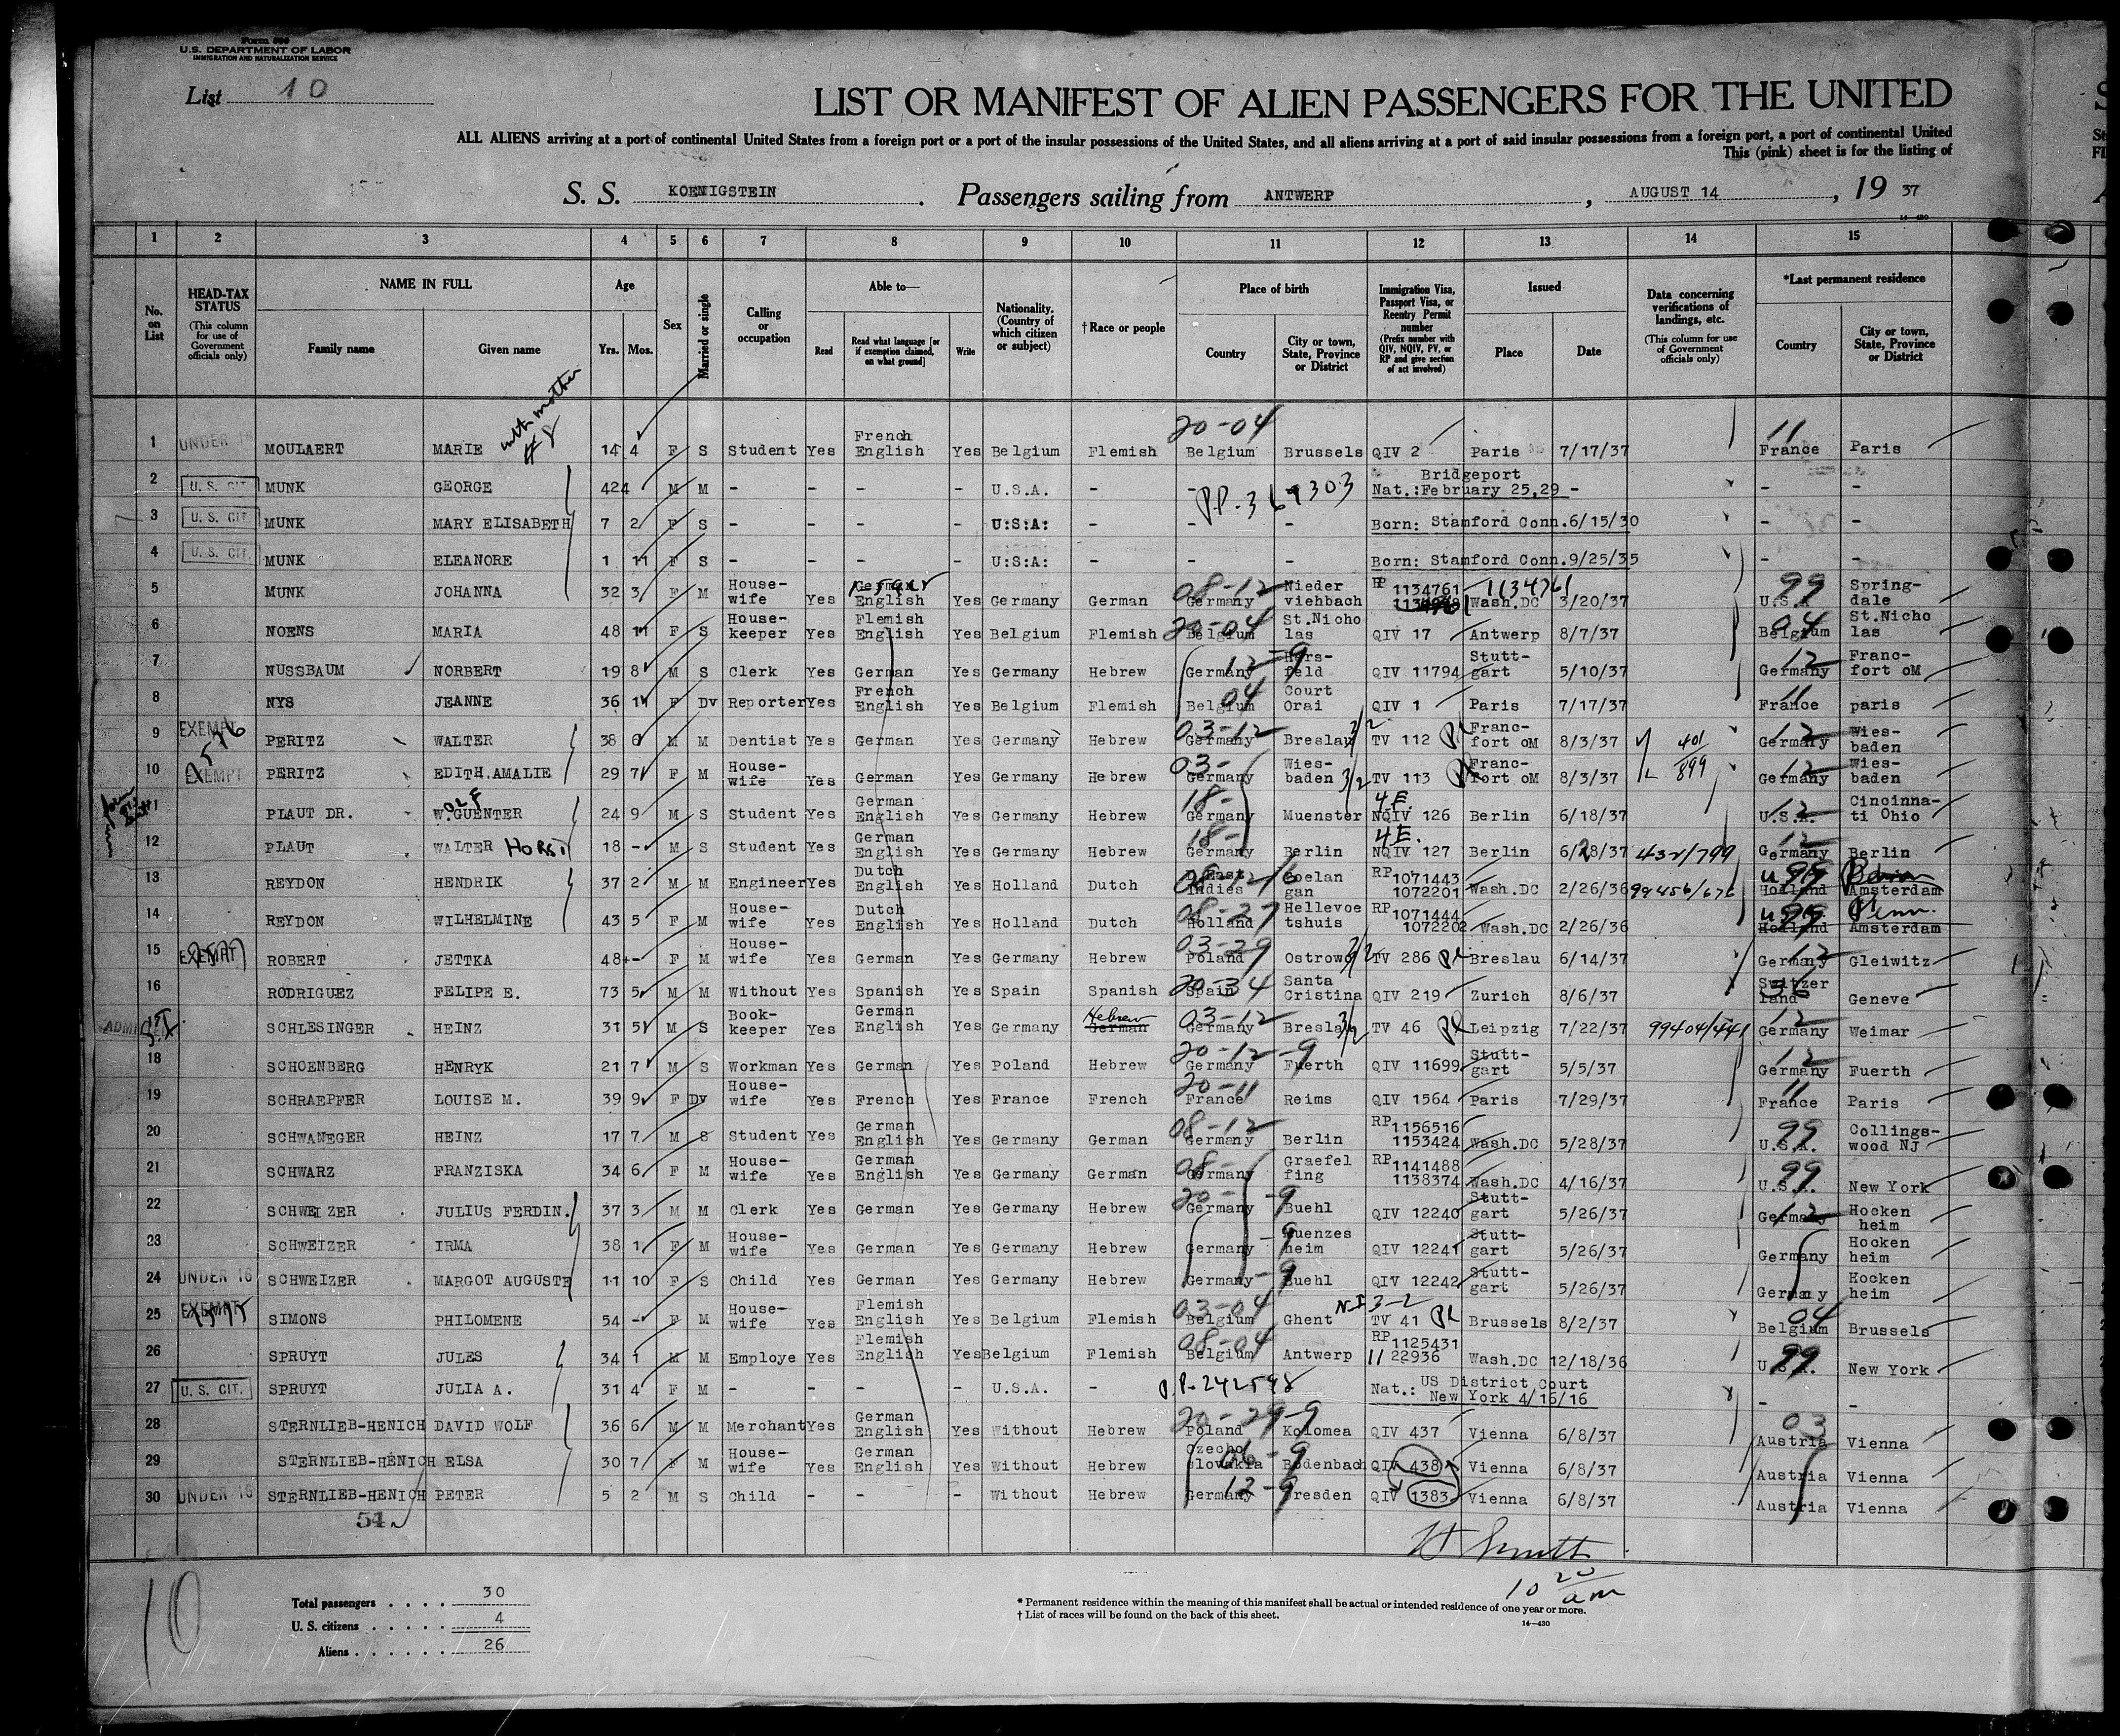 Form 500
U.S. DEPARTMENT OF LABOR
IMMIGRATION AND NATURALIZATION SERVICE
List 10
LIST OR MANIFEST OF ALIEN PASSENGERS FOR THE UNITED
ALL ALIENS arriving at a port of continental United States from a foreign port or a port of the insular possessions of the United States, and all aliens arriving at a port of said insular possessions from a foreign port, a port of continental United
This (pink) sheet is for the listing of
S. S. KOENIGSTEIN . Passengers sailing from ANTWERP , AUGUST 14 , 19 37
14-430
1 2 3 4 5 6 7 8 9 10 11 12 13 14 15
No. on List
HEAD-TAX STATUS (This column for use of Government officials only)
NAME IN FULL
Family name Given name
Age Yrs. Mos.
Sex
Married or single
Calling or occupation
Able to—
Read Read what language [or if exemption claimed, on what ground] Write
Nationality. (Country of which citizen or subject)
†Race or people
Place of birth
Country City or town, State, Province or District
Immigration Visa, Passport Visa, or Reentry Permit number (Prefix number with QIV, NQIV, PV, or RP and give section of act involved)
Issued
Place Date
Data concerning verifications of landings, etc. (This column for use of Government officials only)
*Last permanent residence
Country City or town, State, Province or District
with mother # 8
1 UNDER 16 MOULAERT MARIE 14 4 F S Student Yes French English Yes Belgium Flemish 20-04 Belgium Brussels QIV 2 Paris 7/17/37 11 France Paris
2 U. S. CIT. MUNK GEORGE 42 4 M M - - - - U.S.A. - - P.P. 369303 Bridgeport Nat.:February 25,29 - - -
3 U. S. CIT. MUNK MARY ELISABETH 7 2 F S - - - - U:S:A: - - - Born: Stamford Conn.6/15/30 - -
4 U. S. CIT. MUNK ELEANORE 1 11 F S - - - - U:S:A: - - - Born: Stamford Conn.9/25/35 - -
5 MUNK JOHANNA 32 3 F M House-wife Yes German English Yes Germany German 08-12 Germany Nieder viehbach RP 1134761 1134761 Wash.DC 3/20/37 99 U.S.A Spring-dale
6 NOENS MARIA 48 11 F S House-keeper Yes Flemish English Yes Belgium Flemish 20-04 Belgium St.Nicho las QIV 17 Antwerp 8/7/37 04 Belgium St.Nicho las
7 NUSSBAUM NORBERT 19 8 M S Clerk Yes German Yes Germany Hebrew 12-9 Germany Hers-feld QIV 11794 Stutt-gart 5/10/37 12 Germany Franc-fort oM
8 NYS JEANNE 36 11 F Dv Reporter Yes French English Yes Belgium Flemish 04 Belgium Court Orai QIV 1 Paris 7/17/37 11 France paris
9 EXEMPT PERITZ WALTER 38 6 M M Dentist Yes German Yes Germany Hebrew 03-12 Germany Breslau 3/2 TV 112 Franc-fort oM 8/3/37 401/899 12 Germany Wies-baden
10 EXEMPT PERITZ EDITH.AMALIE 29 7 F M House-wife Yes German Yes Germany Hebrew 03- Germany Wies-baden 3/2 TV 113 Franc-fort oM 8/3/37 12 Germany Wies-baden
11 PLAUT DR. W.GUENTER 24 9 M S Student Yes German English Yes Germany Hebrew 18- Germany Muenster 4E. NQIV 126 Berlin 6/18/37 12 U.S.A. Cincinna-ti Ohio
12 PLAUT WALTER HORST 18 - M S Student Yes German English Yes Germany Hebrew 18- Germany Berlin 4E. NQIV 127 Berlin 6/28/37 432/799 12 Germany Berlin
13 REYDON HENDRIK 37 2 M M Engineer Yes Dutch English Yes Holland Dutch East Indies Goelan gan RP 1071443 1072201 Wash.DC 2/26/36 99456/676 U 99 Holland Amsterdam
14 REYDON WILHELMINE 43 5 F M House-wife Yes Dutch English Yes Holland Dutch 08-27 Holland Hellevoe tshuis RP 1071444 1072202 Wash.DC 2/26/36 99 Holland Penn. Amsterdam
15 EXEMPT ROBERT JETTKA 48 - F M House-wife Yes German Yes Germany Hebrew 03-29 Poland Ostrowo 3/2 TV 286 Breslau 6/14/37 12 Germany Gleiwitz
16 RODRIGUEZ FELIPE E. 73 5 M M Without Yes Spanish Yes Spain Spanish 20-34 Spain Santa Cristina QIV 219 Zurich 8/6/37 36 Switzer land Geneve
ADMI SCHLESINGER HEINZ 31 5 M S Book-keeper Yes German English Yes Germany Hebrew German 03-12 Germany Breslau 3/2 TV 46 Leipzig 7/22/37 99404/441 12 Germany Weimar
18 SCHOENBERG HENRYK 21 7 M S Workman Yes German Yes Poland Hebrew 20-12-9 Germany Fuerth QIV 11699 Stutt-gart 5/5/37 12 Germany Fuerth
19 SCHRAEPFER LOUISE M. 39 9 F Dv House-wife Yes French Yes France French 20-11 France Reims QIV 1564 Paris 7/29/37 11 France Paris
20 SCHWANEGER HEINZ 17 7 M S Student Yes German English Yes Germany German 08-12 Germany Berlin RP 1156516 1153424 Wash.DC 5/28/37 99 U.S.A. Collings-wood NJ
21 SCHWARZ FRANZISKA 34 6 F M House-wife Yes German English Yes Germany German 08- Germany Graefel fing RP 1141488 1138374 Wash.DC 4/16/37 99 U.S.A. New York
22 SCHWEIZER JULIUS FERDIN. 37 3 M M Clerk Yes German Yes Germany Hebrew 20- Germany -9 Buehl QIV 12240 Stutt-gart 5/26/37 12 Germany Hocken heim
23 SCHWEIZER IRMA 38 1 F M House-wife Yes German Yes Germany Hebrew Germany -9 Guenzes heim QIV 12241 Stutt-gart 5/26/37 Germany Hocken heim
24 UNDER 16 SCHWEIZER MARGOT AUGUSTE 11 10 F S Child Yes German Yes Germany Hebrew Germany -9 Buehl QIV 12242 Stutt-gart 5/26/37 Germany Hocken heim
25 EXEMPT SIMONS PHILOMENE 54 - F M House-wife Yes Flemish English Yes Belgium Flemish 03-04 Belgium Ghent 3-2 TV 41 Brussels 8/2/37 04 Belgium Brussels
26 SPRUYT JULES 34 1 M M Employe Yes Flemish English Yes Belgium Flemish 08-04 Belgium Antwerp RP 1125431 1122936 Wash.DC 12/18/36 99 U.S.A. New York
27 U. S. CIT. SPRUYT JULIA A. 31 4 F M - - - - U.S.A. - P.P. 242598 Nat.: US District Court New York 4/16/16 - -
28 STERNLIEB-HENICH DAVID WOLF 36 6 M M Merchant Yes German English Yes Without Hebrew 20-29-9 Poland Kolomea QIV 437 Vienna 6/8/37 03 Austria Vienna
29 STERNLIEB-HENICH ELSA 30 7 F M House-wife Yes German English Yes Without Hebrew 06-9 Czecho slovakia Bodenbach QIV 438 Vienna 6/8/37 Austria Vienna
30 UNDER 16 STERNLIEB-HENICH PETER 5 2 M S Child - - - Without Hebrew 12-9 Germany Dresden QIV 1383 Vienna 6/8/37 Austria Vienna
54
10 20 am
10
Total passengers . . . . 30
U. S. citizens . . . . . . 4
Aliens . . . . . . 26
* Permanent residence within the meaning of this manifest shall be actual or intended residence of one year or more.
† List of races will be found on the back of this sheet.
14-430